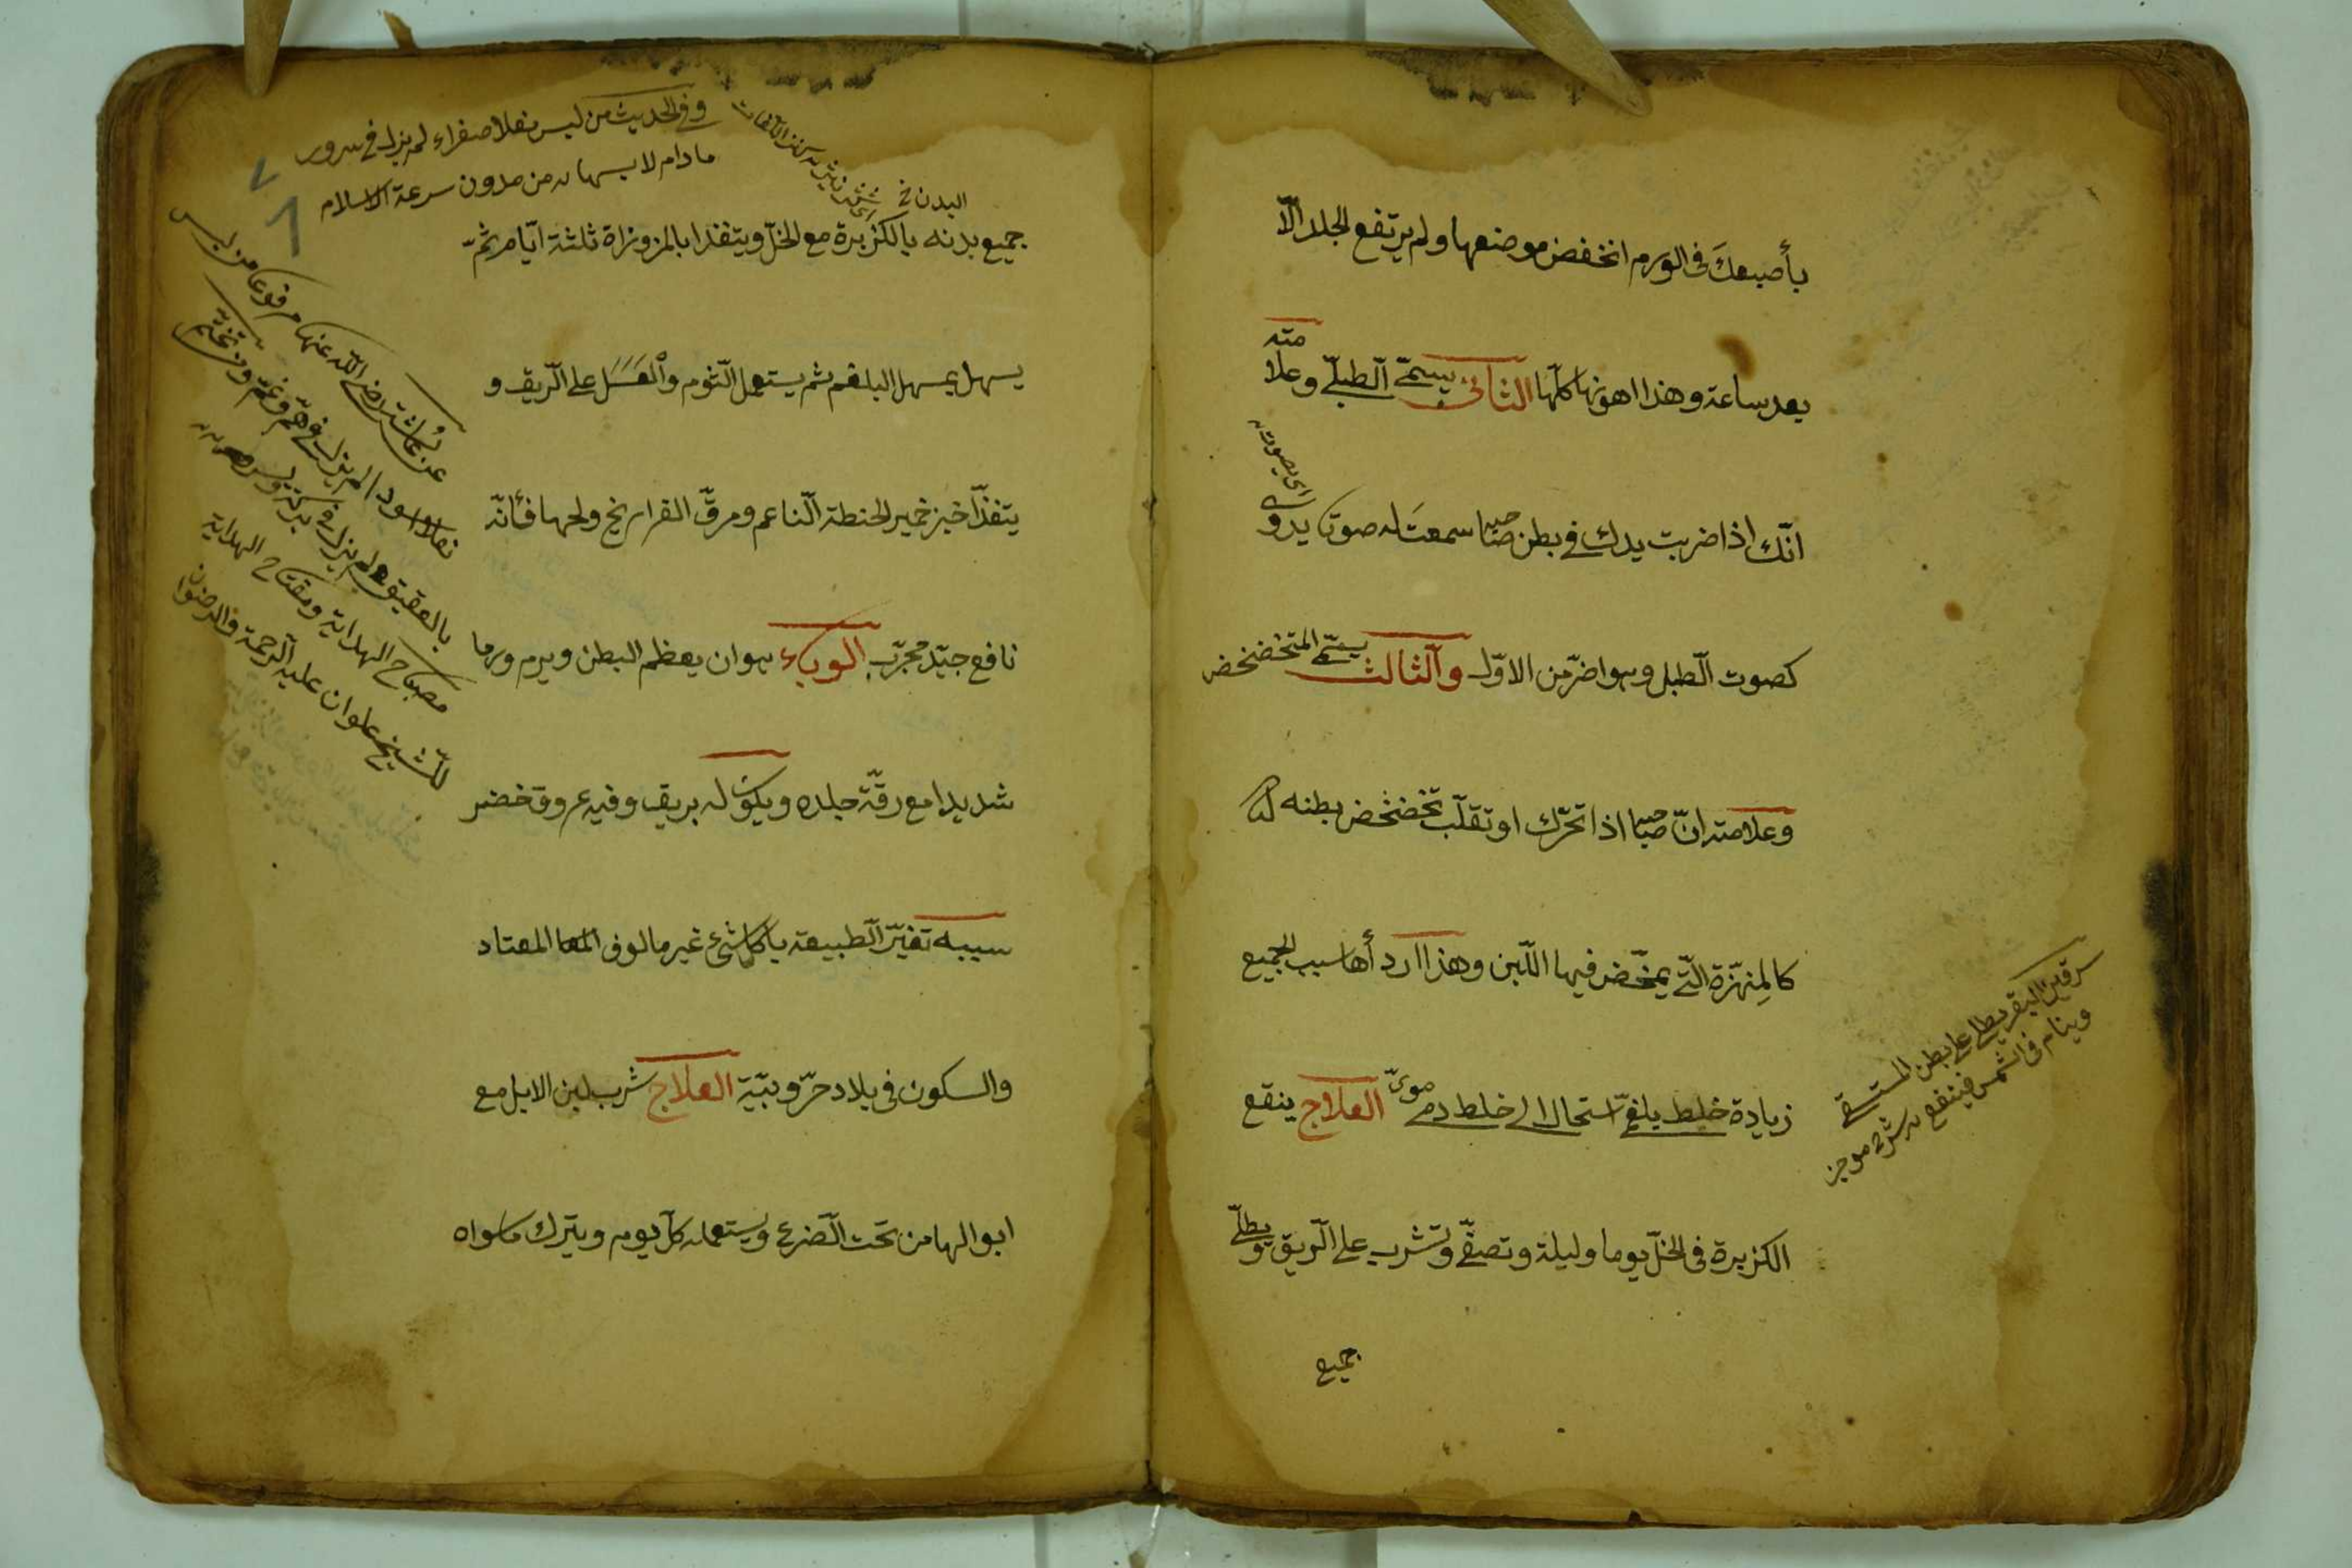 بأصبعكَ فى الورم انخفض موضعها ولم يرتفع الجلد الّا
بعد ساعة وهذا اهونها كلّها الثانى يسمّى الطبلّى وعلا
مته
انّك اذا ضربت يدك فى بطن صاحبها سمعتَ له صوتا يدوى
اى يصوت
كصوت الطبل وهو اضرّ من الاوّل والثالث يسمّى المتخضخض
وعلامته انّ صاحبها اذا تحرّك او تقلّب تخضخض بطنه
كالمِنهزّة الّتى يمخّض فيها اللّبن وهذا اردأها سبب الجميع
زيادة خلط بلغمىّ استحال الى خلط دموىّ العلاج ينقع
الكزبرة فى الخلّ يوما وليلة وتصفّى وتشرب على الرّيق ويطلّى
جميع
سرقين البقر يطلى على بطن المستسقى
وينام فى الشمس فينتفع به شرح موجز
وفى الحديث من لبس نعلا صفراء لم يزل فى سرور
ما دام لابسها
البدن
جميع بدنه بالكزبرة مع الخلّ ويتغذا بالمزوزاة ثلثة ايّام ثمّ
يسهل بمسهل البلغم ثم يستعمل الثوم والعَسَل على الرّيق و
يتغذّا خبز خمير الحنطة النّاعم ومرقّ الفراريخ ولحمها فأنّه
نافع جيّد مجرّب الوباء هو ان يعظم البطن ويرم ورما
شديدا مع رقّة جلده ويكون له بريق وفيه عروق خضر
سببه تغيّر الطبيعة باكل شئ غير مالوف المعا المعتاد
والسكون فى بلاد حرّ وبيّة العلاج شرب لبن الابل مع
ابوالها من تحت الضرع ويستعمله كلّ يوم ويترك ماسواه
عن عائشة رضى الله عنها مرفوعا من لبس
نعلا اسود لم يزل فى همّ وغمّ ومن تختّم
بالعقيق لم يزل فى بركة
مصباح الهداية ومفتاح الهداية
للشيخ علوان عليه الرحمة والرضوان